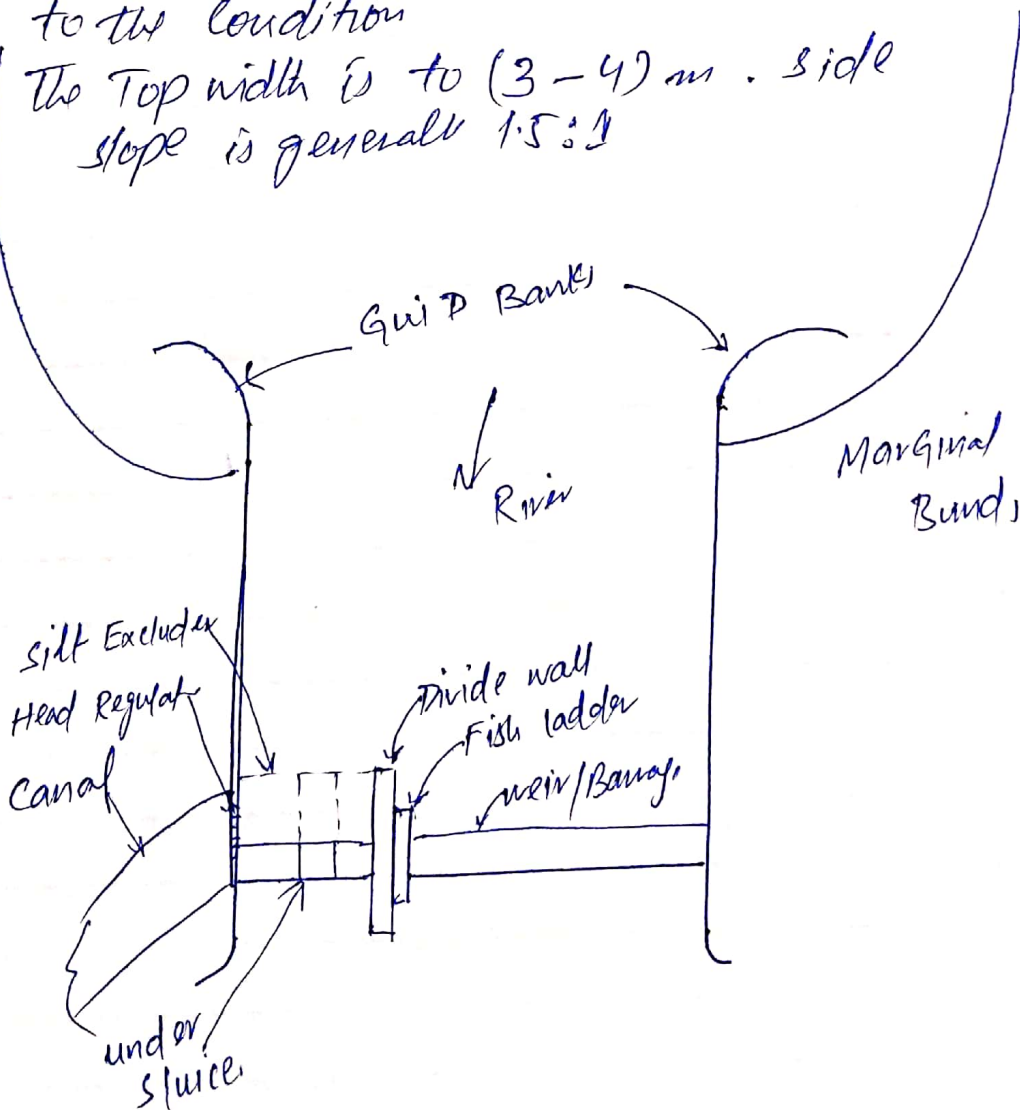 to the condition
The Top width is to (3-4) m. side
slope is generall 1.5:1
Gui D Banks
River
MarGinal
Bunds
silt Excluder
Head Regulatr
Canal
Divide wall
Fish ladder
weir/Barrag.
under
sluice.